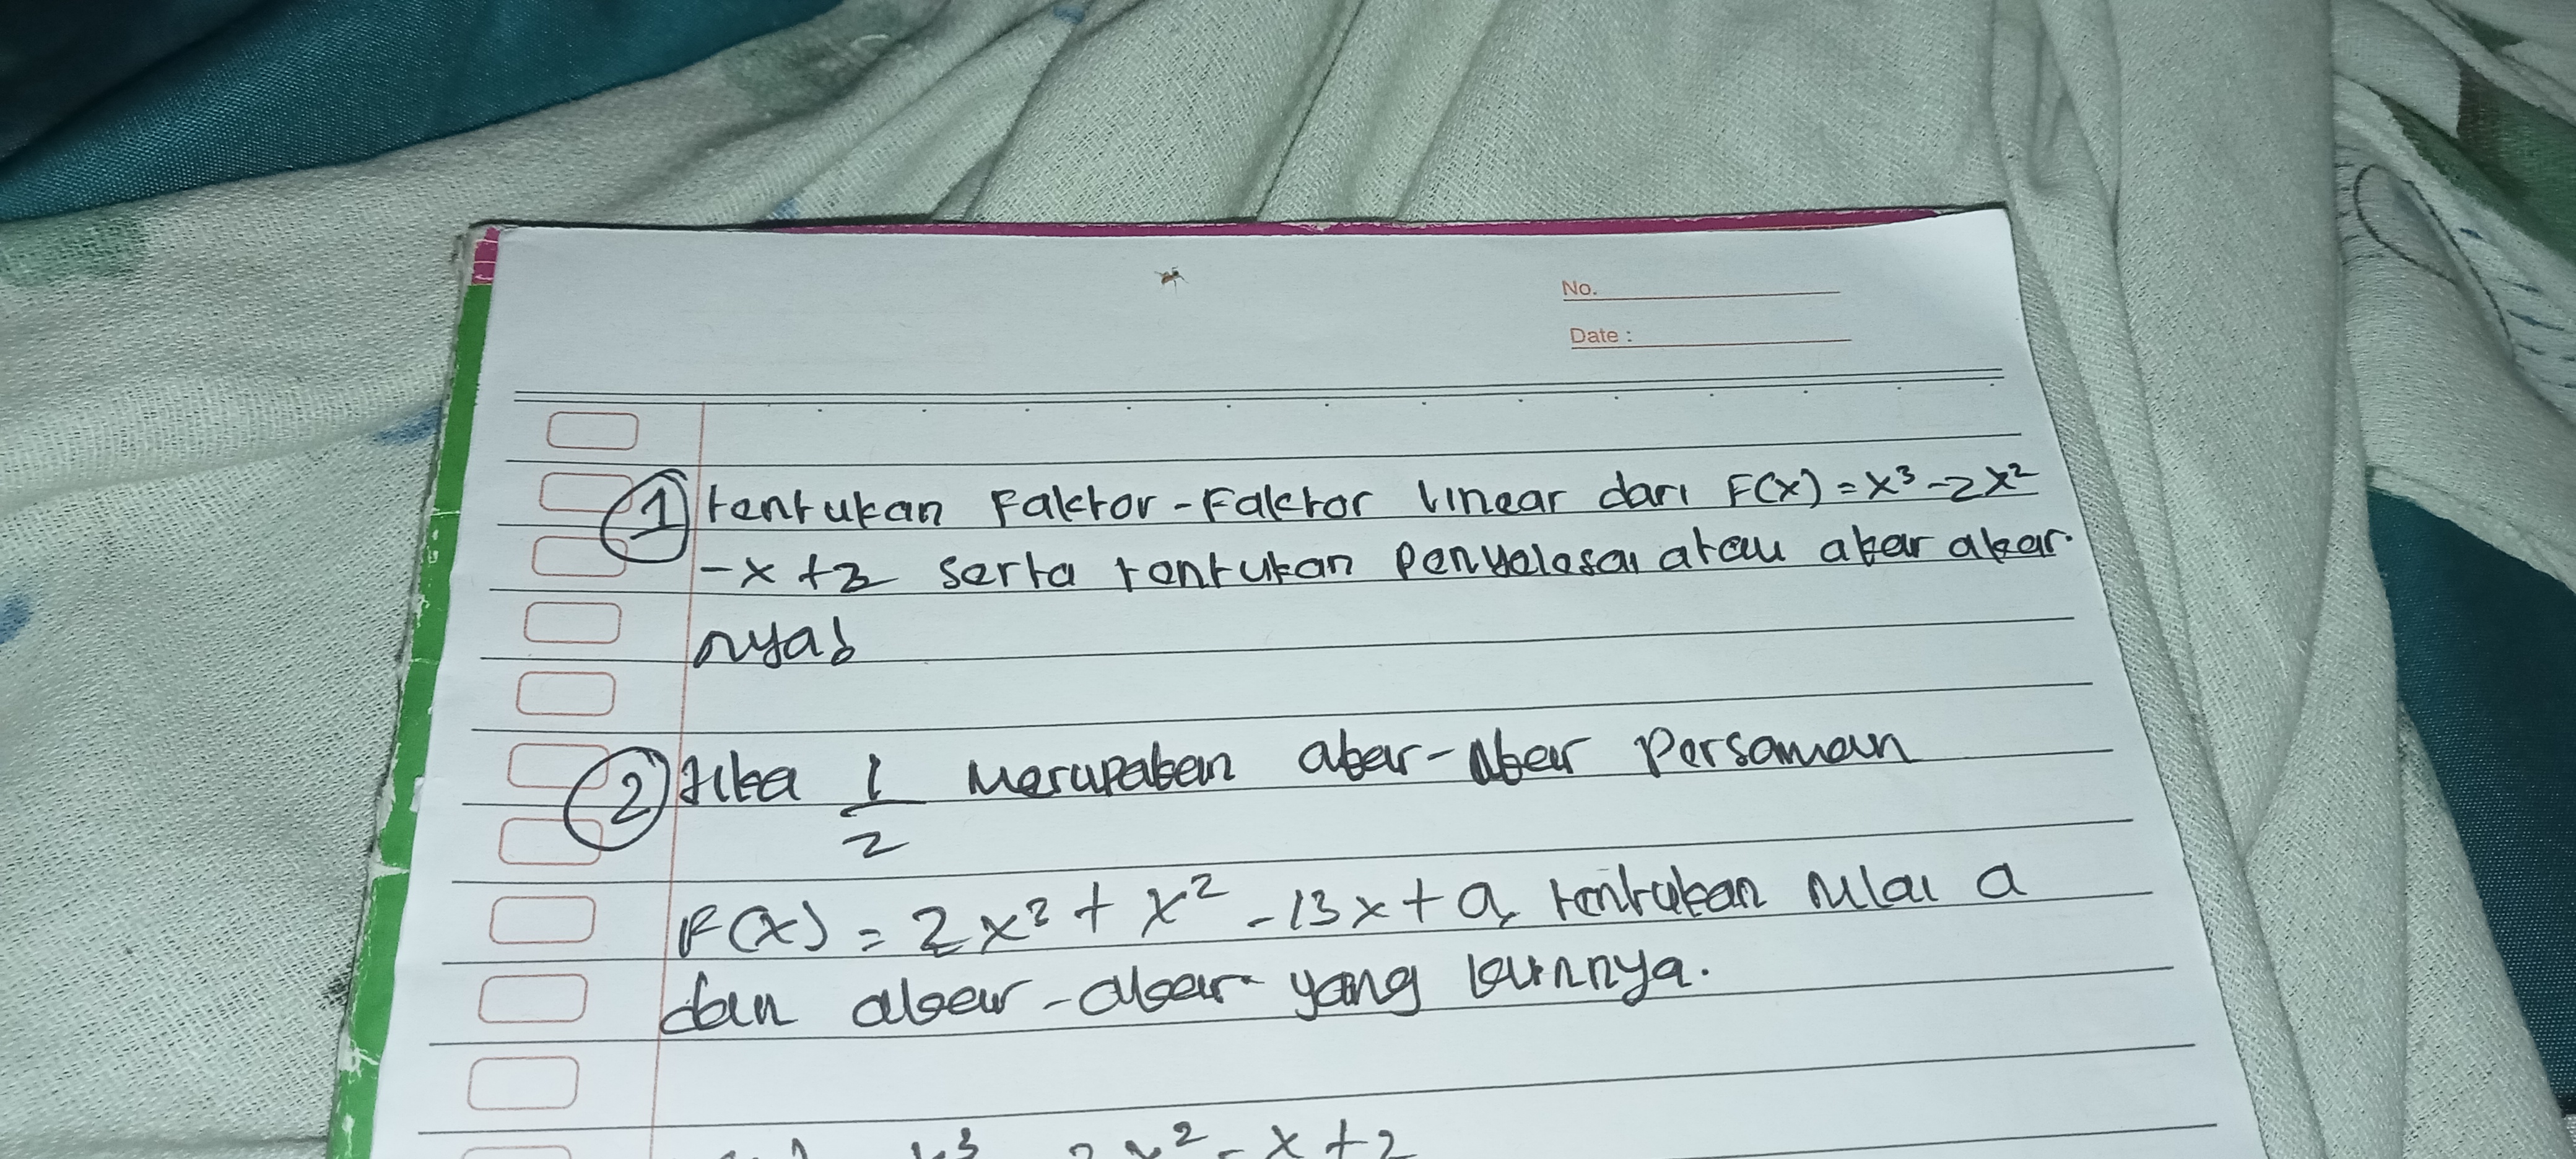 No.
Date :
1 tentukan Faktor-Faktor linear dari F(x) = x³ - 2x²
-x +2 serta tentukan Penyelesai atau akar akar
nya!
2 Jika 1/2 Merupakan akar-Akar Persamaan
F(x) = 2x³ + x² - 13x + a, tentukan nilai a
dan akar-akar yang lainnya.
x³ - 2x² - x + 2